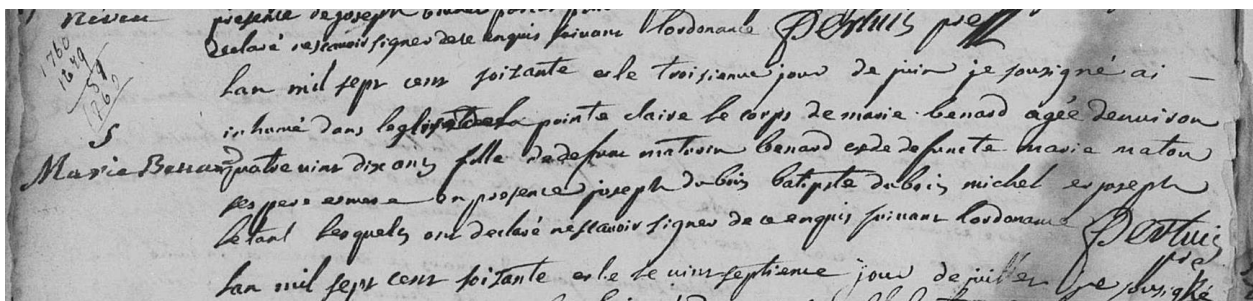 présence de joseph
declaré ne scavoir signer de ce enquis suivant lordonance
1760
lan mil sept cent soixante et le troisieme jour de juin je sousigné ai
inhumé dans leglise de la pointe claire le corps de marie benard agée denviron
5
Marie Benard quatre vint dix ans fille de defunt maturin benard et de defuncte marie maton
ses pere et mere en presence joseph dubois batiste dubois michel et joseph
lesquels ont declaré ne scavoir signer de ce enquis suivant lordonance
lan mil sept cent soixante et le vint septieme jour de juillet je sousigné